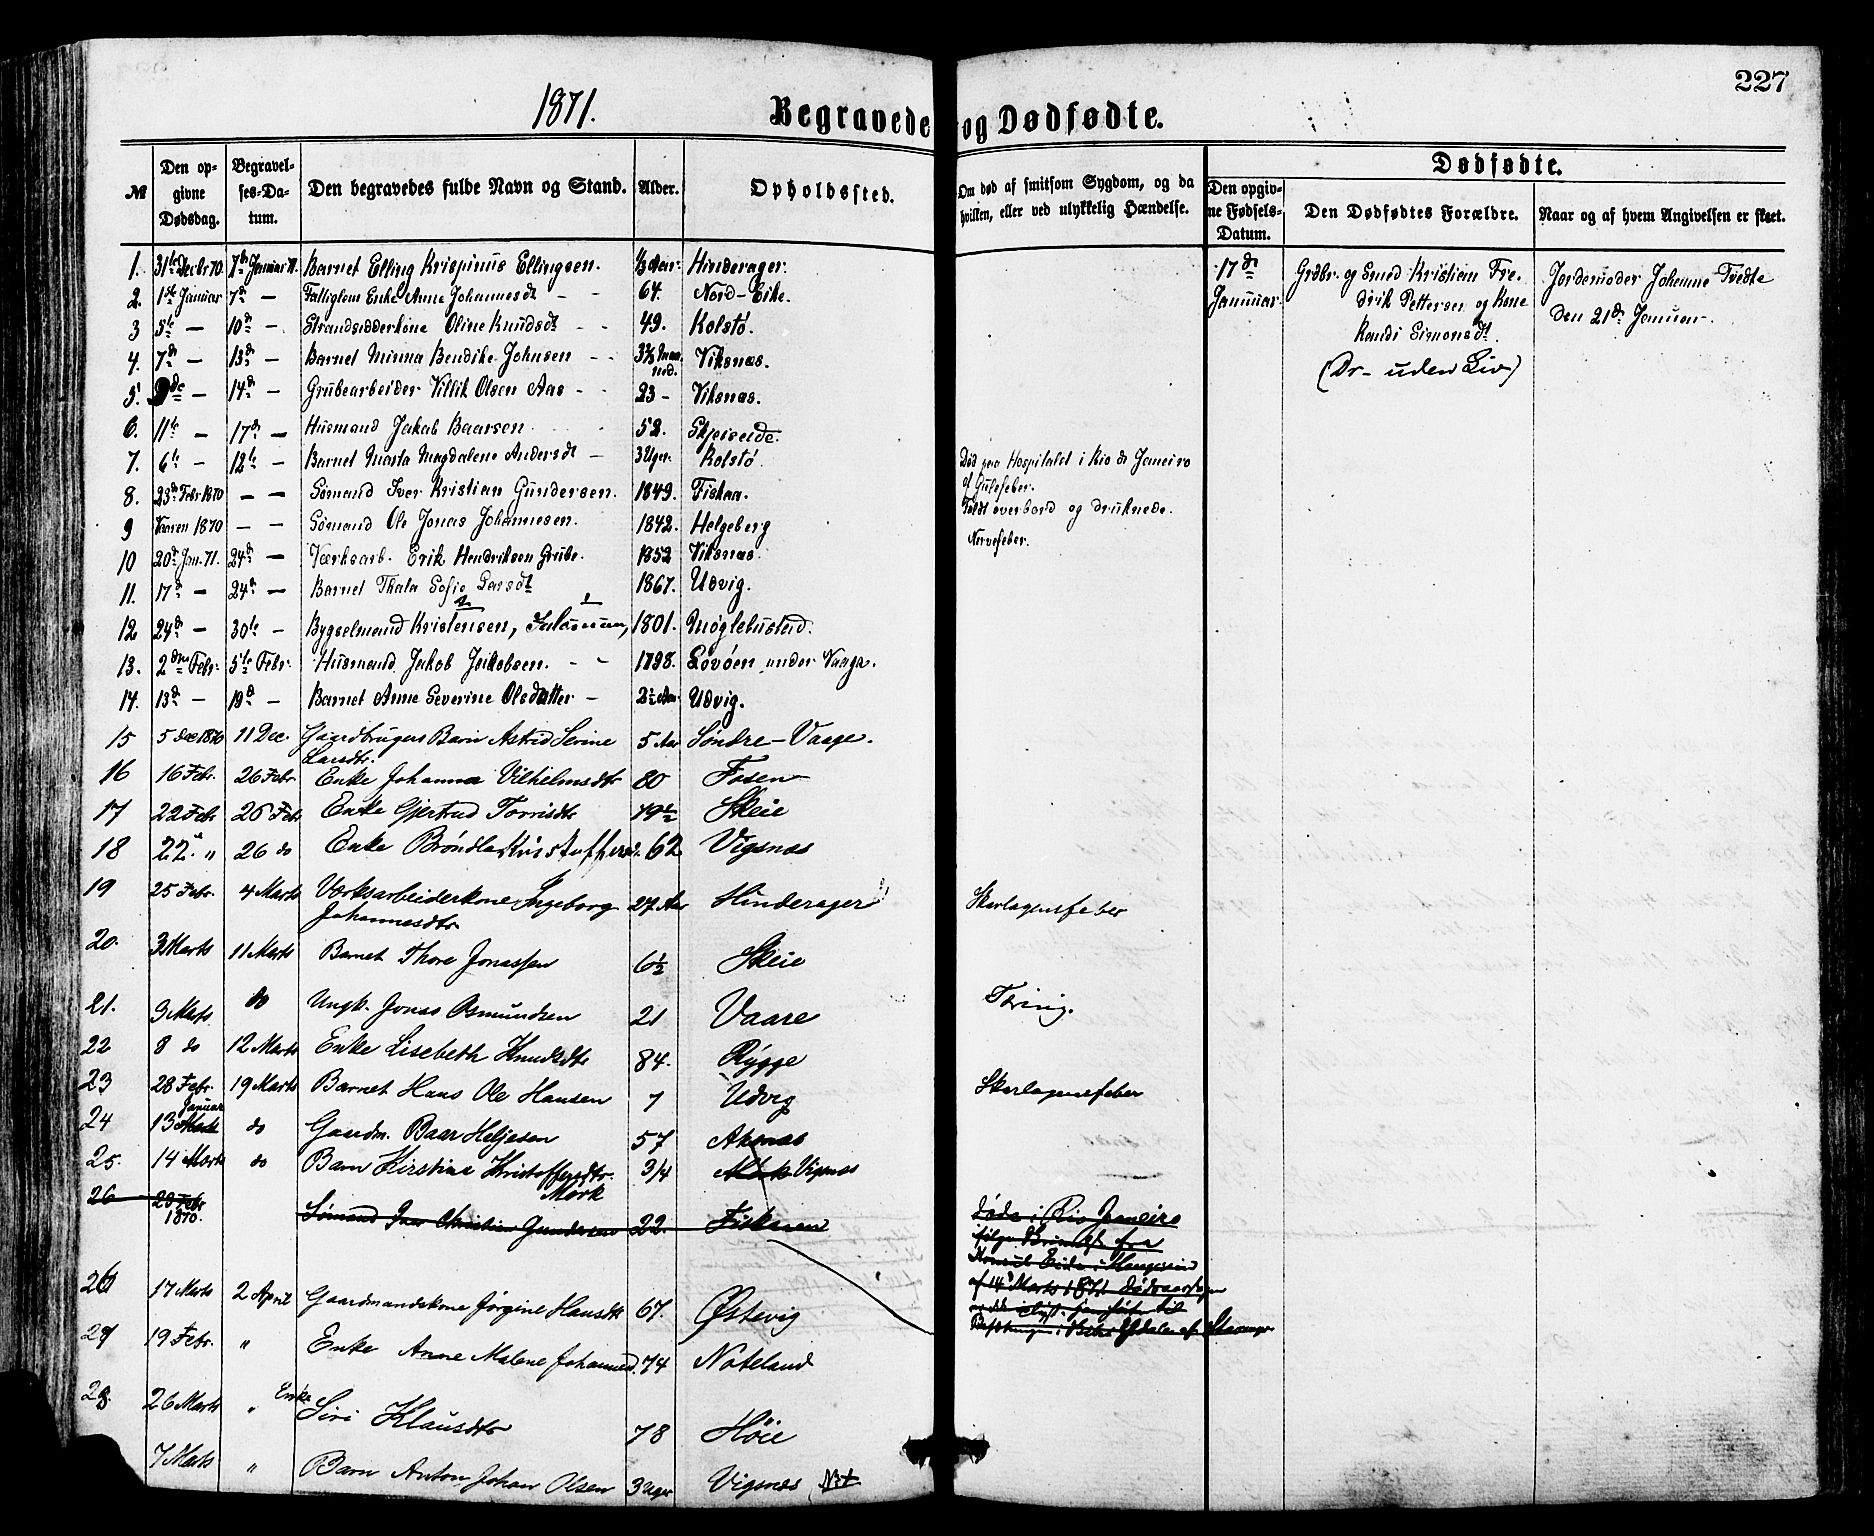 227
1871.
Begravede og Dødfødte.
№
Den opgivne Dødsdag.
Begravelses-Datum.
Den begravedes fulde Navn og Stand.
Alder.
Opholdssted.
Om død af smitsom Sygdom, og da hvilken, eller ved ulykkelig Hændelse.
Dødfødte.
Den opgivne Fødsels-Datum.
Den Dødfødtes Forældre.
Naar og af hvem Angivelsen er skeet.
1. 31te Decbr 70. 7de Januar 71. Barnet Elling Krispinus Ellingsen. 1/3 Aar. Hinderager.
2. 1ste Januar 7de — Enke Anne Johannesdt — - 64. Nord-Eike.
3 5te — 10de — Strandsidderkone Oline Knudsdt — 49. Kolstø.
4. 7de — 13de — Barnet Minna Bendike Johnsen - - Maaned. Viksnæs.
5. 9de — 14de — Grubearbeider Villik Olsen Aas - - 23 - Viksnæs.
6. 11te — 17de — Husmand Jakob Baarsen 52. Skjeiseide.
7. 6te — 12te — Barnet Marta Magdalene Andersdt — 3 Uger. Kolstø.
8. 23de Febr 1870 — — Sømand Iver Kristian Gundersen. 1849. Fiskaa. Død paa Hospitalet i Rio de Janeiro af Gulefeber.
9 Vaaren 1870 — — Sømand Ole Jonas Johannesen. 1842. Helgeberg Faldt overbord og druknede.
10 20de Jan. 71. 24de — Værksarb. Erik Hendriksen Grube. 1852 Viksnæs. Nervefeber.
11. 17de — 24de — Barnet Thala Sofie Larsdt 1867. Udvig.
12 24de — 30te — Bygselmand Kristensen, Salomon, 1801. Møglebustad.
13. 2den Febr. 5te Febr. Husmand Jakob Jakobsen. - - 1798. Lovøen under Vaage.
14. 13de — 19de — Barnet Anne Severine Olsdatter — 2½ Aar Udvig.
15 5 Dec 1870 11 Dec. Gaardbrugers Barn Astrid Serine Larsdtr. 5 Aar Søndre-Vaage.
16 16 Febr. 26 Febr Enke Johanna Vilhelmsdtr 80 Fosen
17 22 Feb 26 Feb Enke Gjertrud Torrisdtr Skeie
18 22 " 26 do Enke Brøndla Kristoffersd. 62 Vigsnæs
19 25 Febr. 4 Marts Værksarbeiderkone Ingeborg Johannesdtr 27 Aar Hinderager Skarlagensfeber
20. 3 Marts 11 Marts Barnet Thore Jonassen 6½ Skeie
21. 3 Marts do Ungk. Jonas Osmundsen 21 Vaare Tæring.
22 8 do 12 Marts Enke Lisebeth Knudsdtr 84. Rygge
23 28 Febr. 19 Marts Barnet Hans Ole Hansen 7 Udvig Skarlagensfeber
24 13 Januar do Gaardm. Baar Heljesen 57 Aksnæs
25. 14 Marts do Barn Kirstine Kristoffersdtr. Mørk 3/4 Vigsnæs
26 23 Febr 1870. Sømand Iver Christian Gundersen 22. Fiskaaen døde i Rio Janeiro ifølge fra Konsul Eide i Haugesund af 14 Marts 1871
26 17 Marts 2 April Gaardmandskone Jørgine Hansdtr 67. Østevig
27 19 Febr. " Enke Anne Malene Johannesd. 74 Nateland
28. 26 Marts " Enke Siri Klausdtr 78 Høie
7 Marts " Barn Anton Johan Olsen 3 Uger Vigsnæs
17de Januar. Grdbr. og Smed Kristian Fredrik Pettersen og Kone Randi Simonsdt. (Dr- uden Liv)
Jordemoder Johanne Tvedte den 21de Januar.